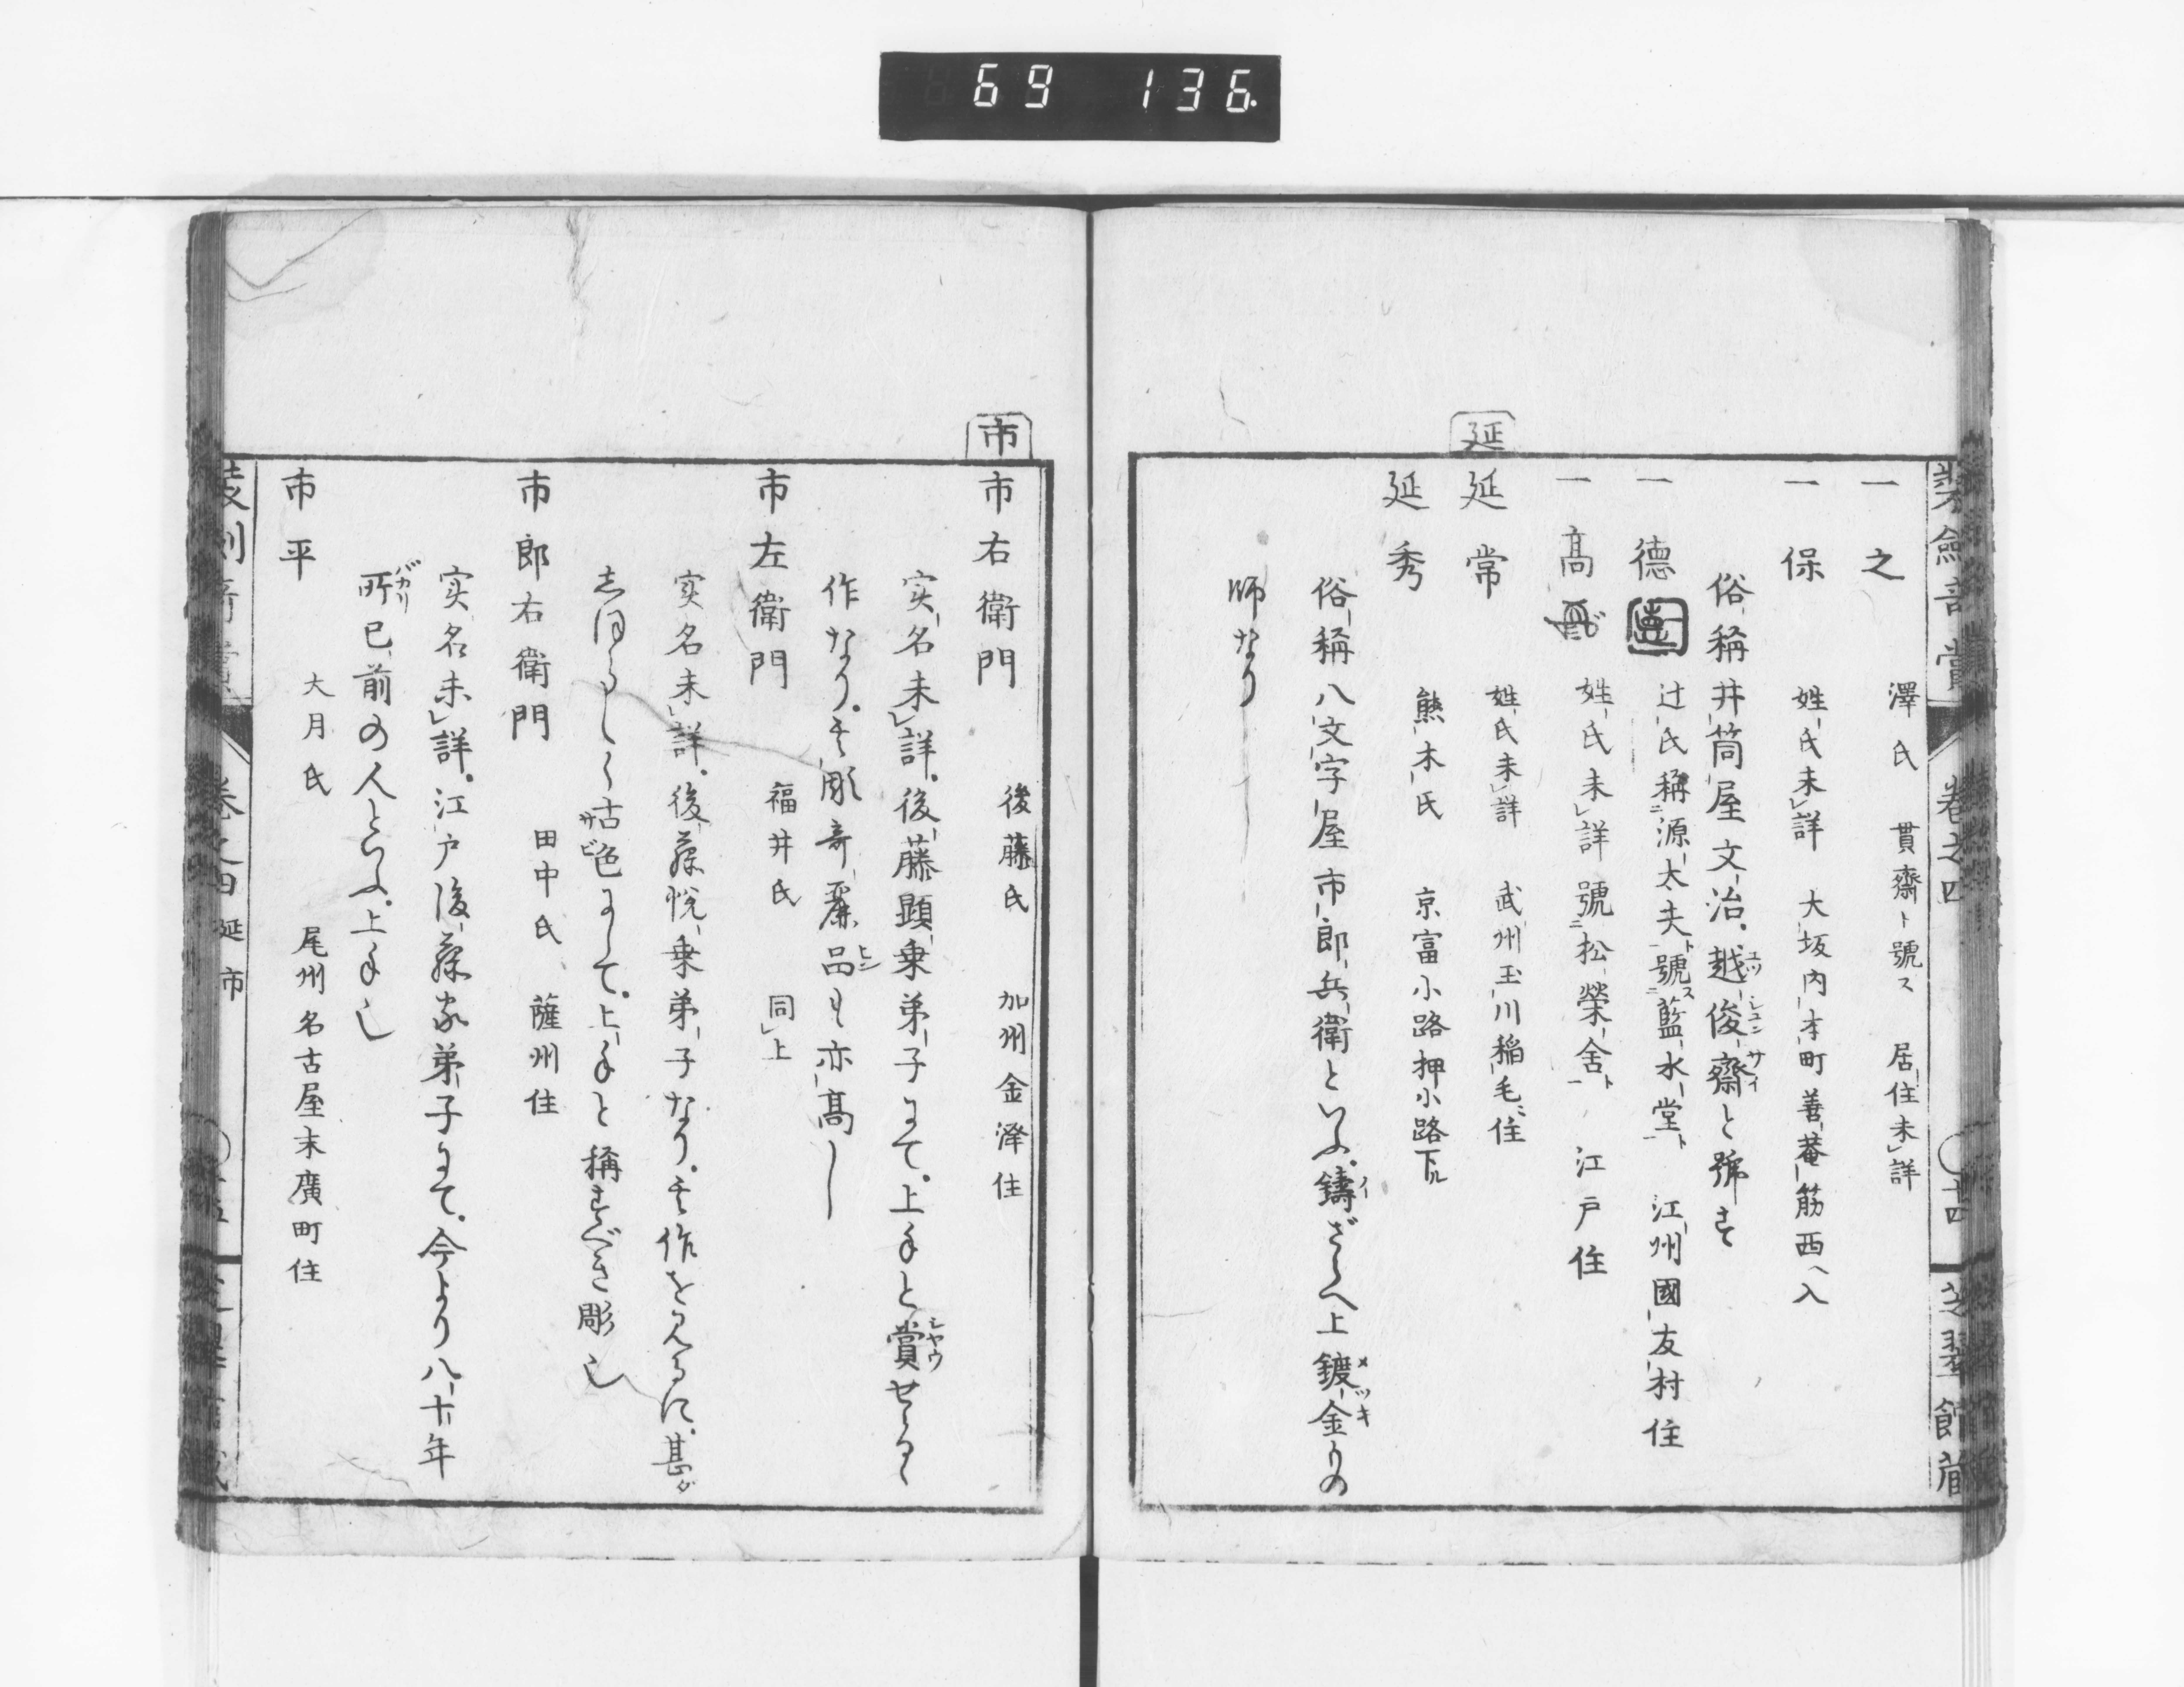 69 136
一之 澤氏 貫齋ト號ス 居住未詳
一保 姓氏未詳 大坂内本町善菴筋西ヘ入
俗稱井筒屋文治。越俊齋と號す
一德 辻氏稱源太夫ト號ス藍水堂ト 江州國友村住
一高 姓氏未詳號松榮舍ト 江戸住
延
延常 姓氏未詳 武州玉川稲毛住
延秀 熊木氏 京富小路押小路下ル
俗稱八文字屋市郎兵衛といふ。鑄ざらへ上鍍金の
師なり
市
市右衛門 後藤氏 加州金澤住
实名未詳。後藤顕乗弟子にて。上手と賞せらる
作なり。其彫奇麗品も亦高し
市左衛門 福井氏 同上
实名未詳。後藤悦乗弟子なり。其作をみるに。甚
しほらしく古色にして。上手と稱すべき彫也
市郎右衛門 田中氏 薩州住
实名未詳。江戸後藤家弟子にて。今より八十年
所已前の人といふ。上手也
市平 大月氏 尾州名古屋末廣町住
卷之四 延 市